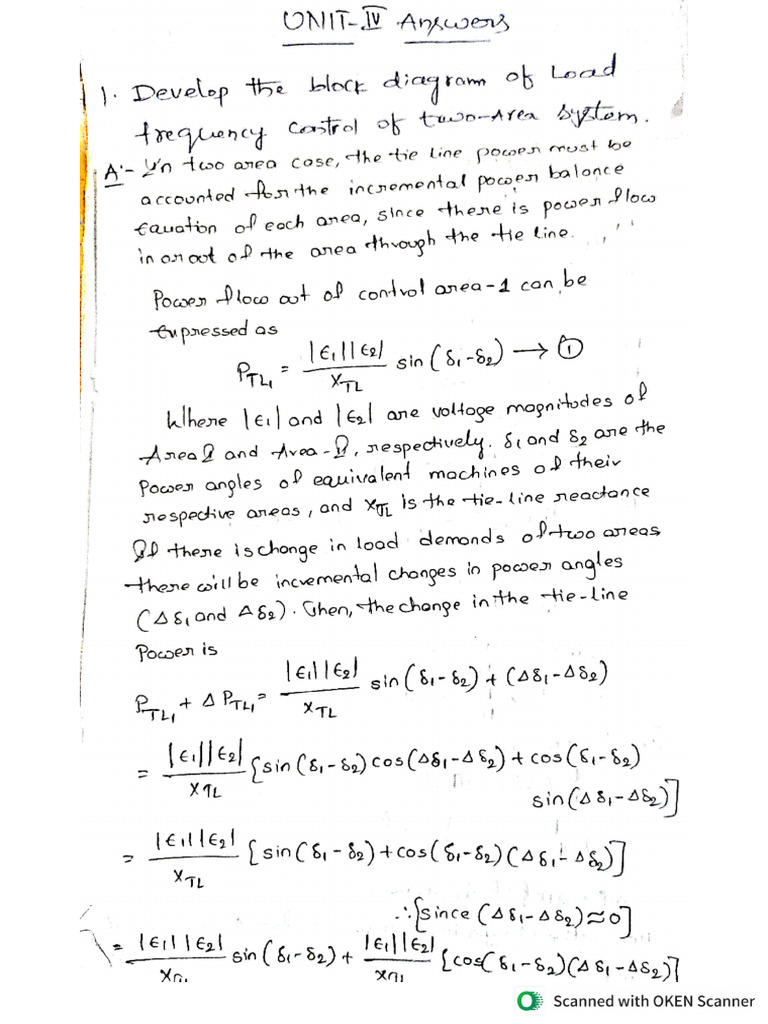 UNIT-IV Answers
1. Develop the block diagram of Load
frequency control of two-Area system.
A:- In two area case, the tie line power must be
accounted for the incremental power balance
Equation of each area, since there is power flow
in or out of the area through the tie line.
Power flow out of control area-1 can be
Expressed as
P_TL1 = |E1||E2| / X_TL sin (δ1-δ2) → ①
Where |E1| and |E2| are voltage magnitudes of
Area 1 and Area-2, respectively. δ1 and δ2 are the
Power angles of equivalent machines of their
respective areas, and X_TL is the tie-line reactance
If there is change in load demands of two areas
there will be incremental changes in power angles
(Δδ1 and Δδ2). Then, the change in the tie-line
Power is
P_TL1 + ΔP_TL1 = |E1||E2| / X_TL sin (δ1-δ2) + (Δδ1-Δδ2)
= |E1||E2| / X_TL {sin (δ1-δ2) cos (Δδ1-Δδ2) + cos (δ1-δ2)
sin (Δδ1-Δδ2)]
= |E1||E2| / X_TL [sin (δ1-δ2) + cos (δ1-δ2) (Δδ1-Δδ2)]
∴[since (Δδ1-Δδ2)≈0]
= |E1||E2| / X_TL sin (δ1-δ2) + |E1||E2| / X_TL [cos(δ1-δ2)(Δδ1-Δδ2)]
Scanned with OKEN Scanner